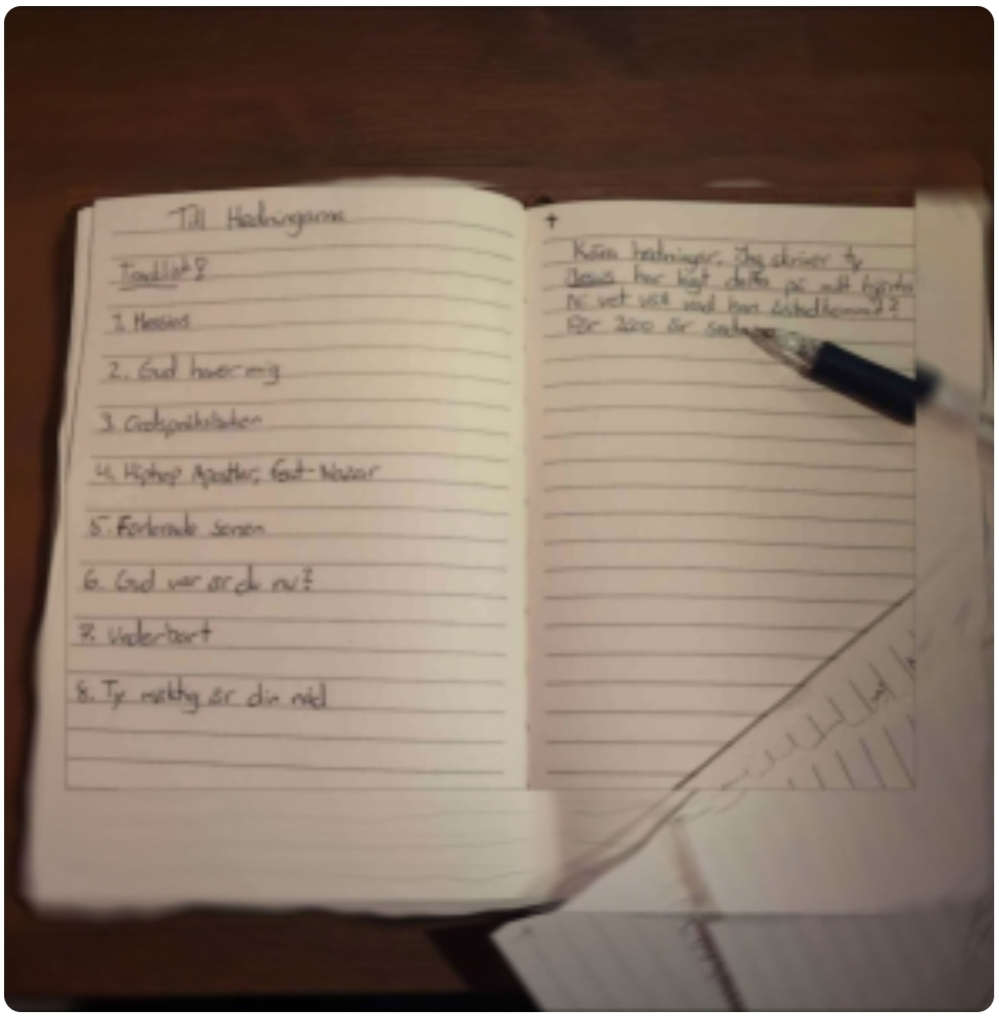 Till Hedningarna
1. Messias
2. Gud haver mig
3.
4. Hiphop Apostlar,
5. Förlorade sonen
6. Gud var är du nu?
7. Underbart
8. Ty mäktig är din nåd
Kära hedningar. Jag skriver ty
Jesus har lagt detta på mitt hjärta
ni vet väl vad han åstadkommit?
För 2000 år sedan